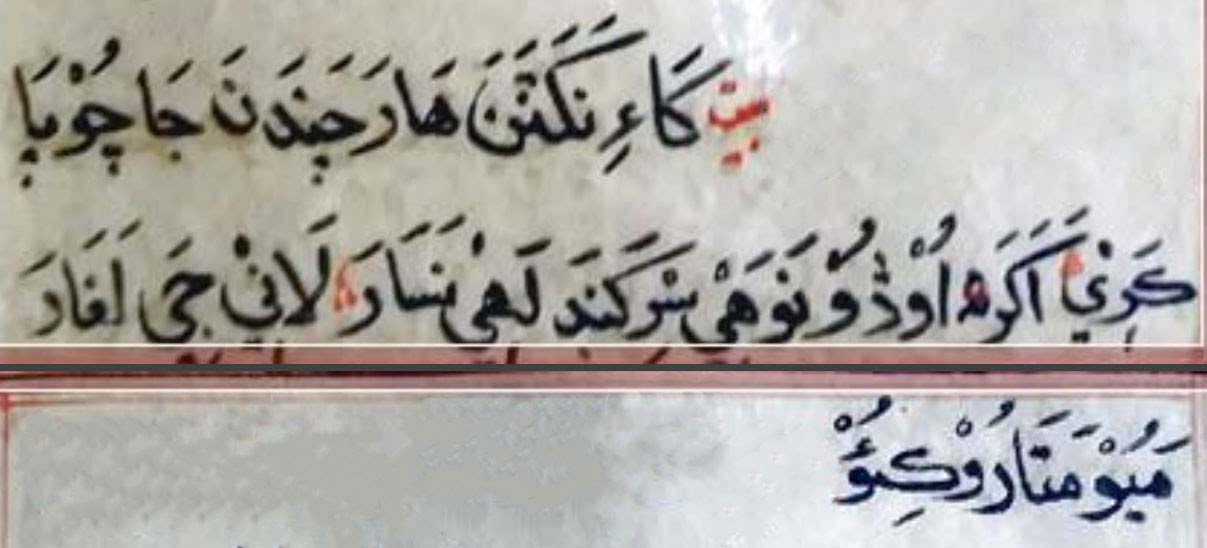 بيت كَاءِ نَكَتَنَ هَارَ چَندَنَ جَا چُوْپَا
كَرِيْ اَكَرَ اُوْڎُوْ نَوُهَيْ سَرَكَندَ لَهيْ نَسَارَ لَانيْ جَي لَغَارَ
مَيُوْ مَتَارُوْ كِئُوْ